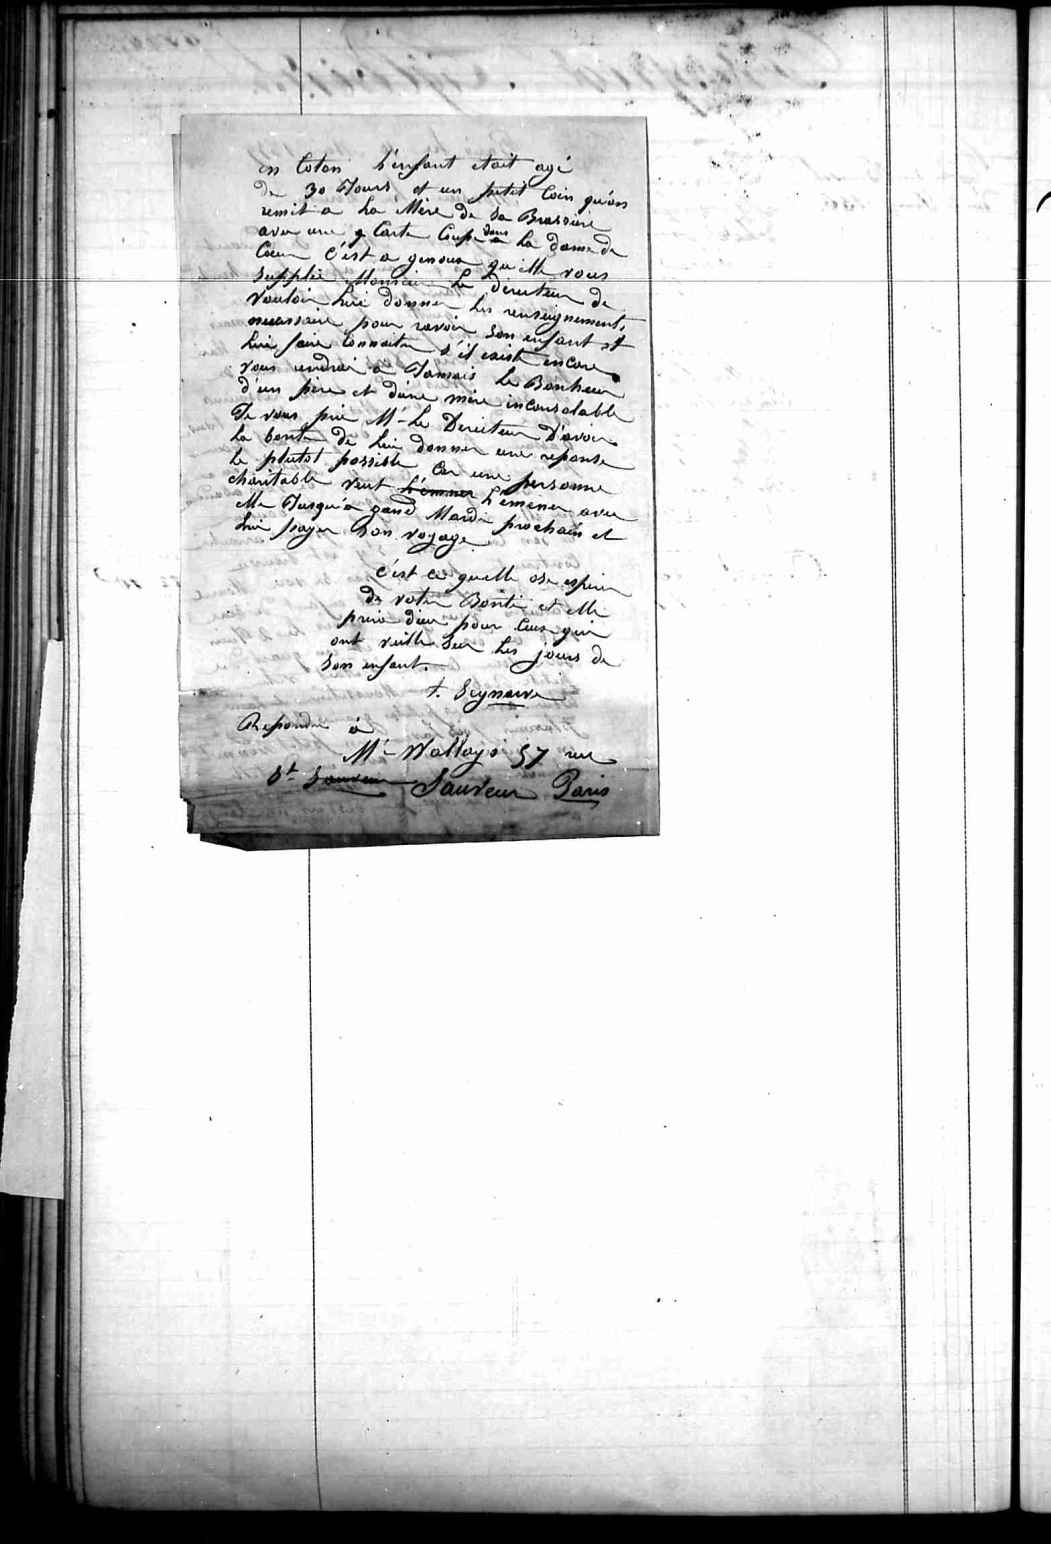 en Coton L'enfant etait agé
de 30 Jours et un petit Coin qu'on
remit a La Mère de Sa Brassiere
avec une Carte Coupe dans La dame de
Coeur C'est a genoux qu'elle vous
Supplie Monsieur Le directeur de
Vouloir Lui donner Les renseignements
necessaire pour ravoir Son enfant et
Lui faire Connaitre s'il existe encore
vous rendrai a Jamais Le Bonheur
d'un père et d'une mère inconsolable
Je vous prie Mr Le Directeur D'avoir
La bonté de Lui donner une reponse
Le plutot possible Car une personne
charitable veut L'emmer L'emener avec
elle Jusqu'a gand Mardi prochain et
Lui payer Son voyage
C'est ce quelle ose esperer
de votre Bonté et elle
prira dieu pour Ceux qui
ont veillé Sur Les jours de
Son enfant.
Repondre à
Mr Wallays 57 rue
St Sauveur Sauveur Paris